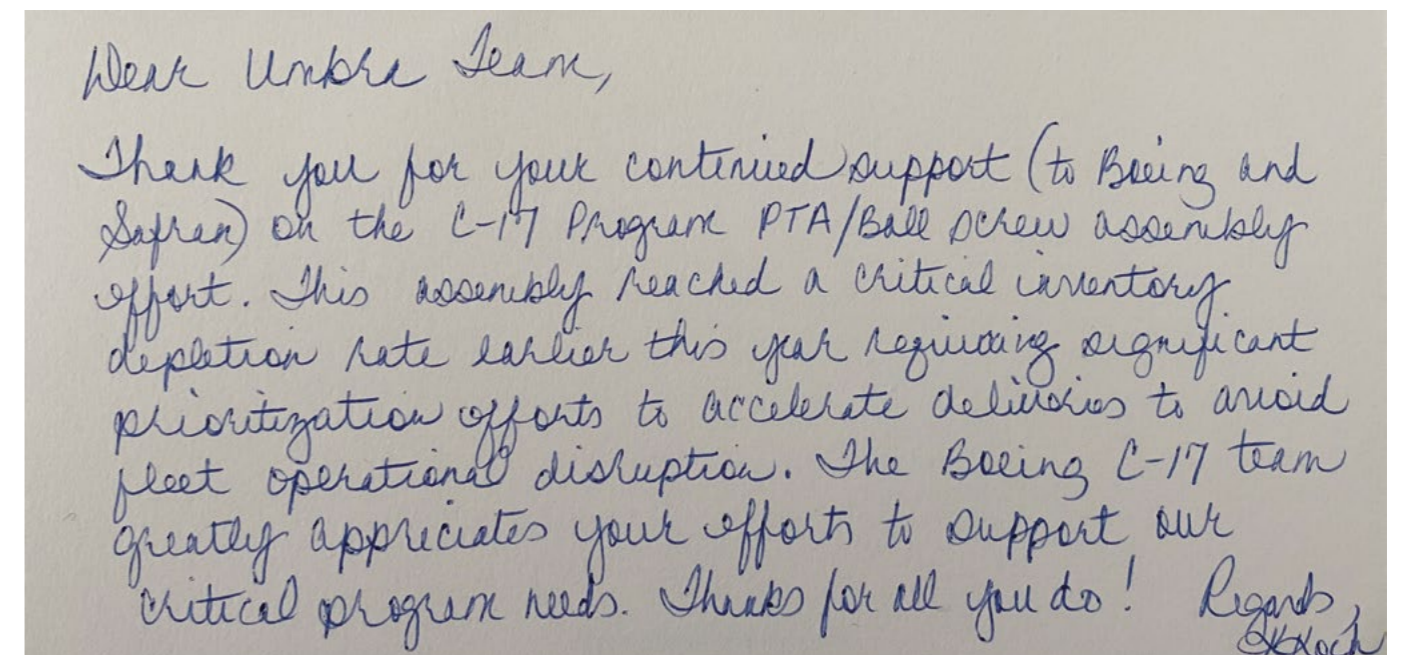 Dear Umbra Team,
Thank you for your continued support (to Boeing and
Safran) on the C-17 Program PTA/Ball screw assembly
effort. This assembly reached a critical inventory
depletion rate earlier this year requiring significant
prioritization efforts to accelerate deliveries to avoid
fleet operational disruption. The Boeing C-17 team
greatly appreciates your efforts to support our
critical program needs. Thanks for all you do! Regards,
Koch